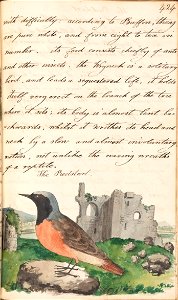 424
with difficulty according to Buffon, they
are pure white, and from eight to ten in
number. its food consists chiefly of ants
and other insects. the Wryneck is a solitary
bird, and leads a sequestered life, it holds
itself very erect on the branch of the tree
where it sits; its body is almost bent ba-
ckwards, whilst it writhes its head and
neck by a slow and almost involuntary
motion, not unlike the waving wreaths
of a reptile.
The Redstart